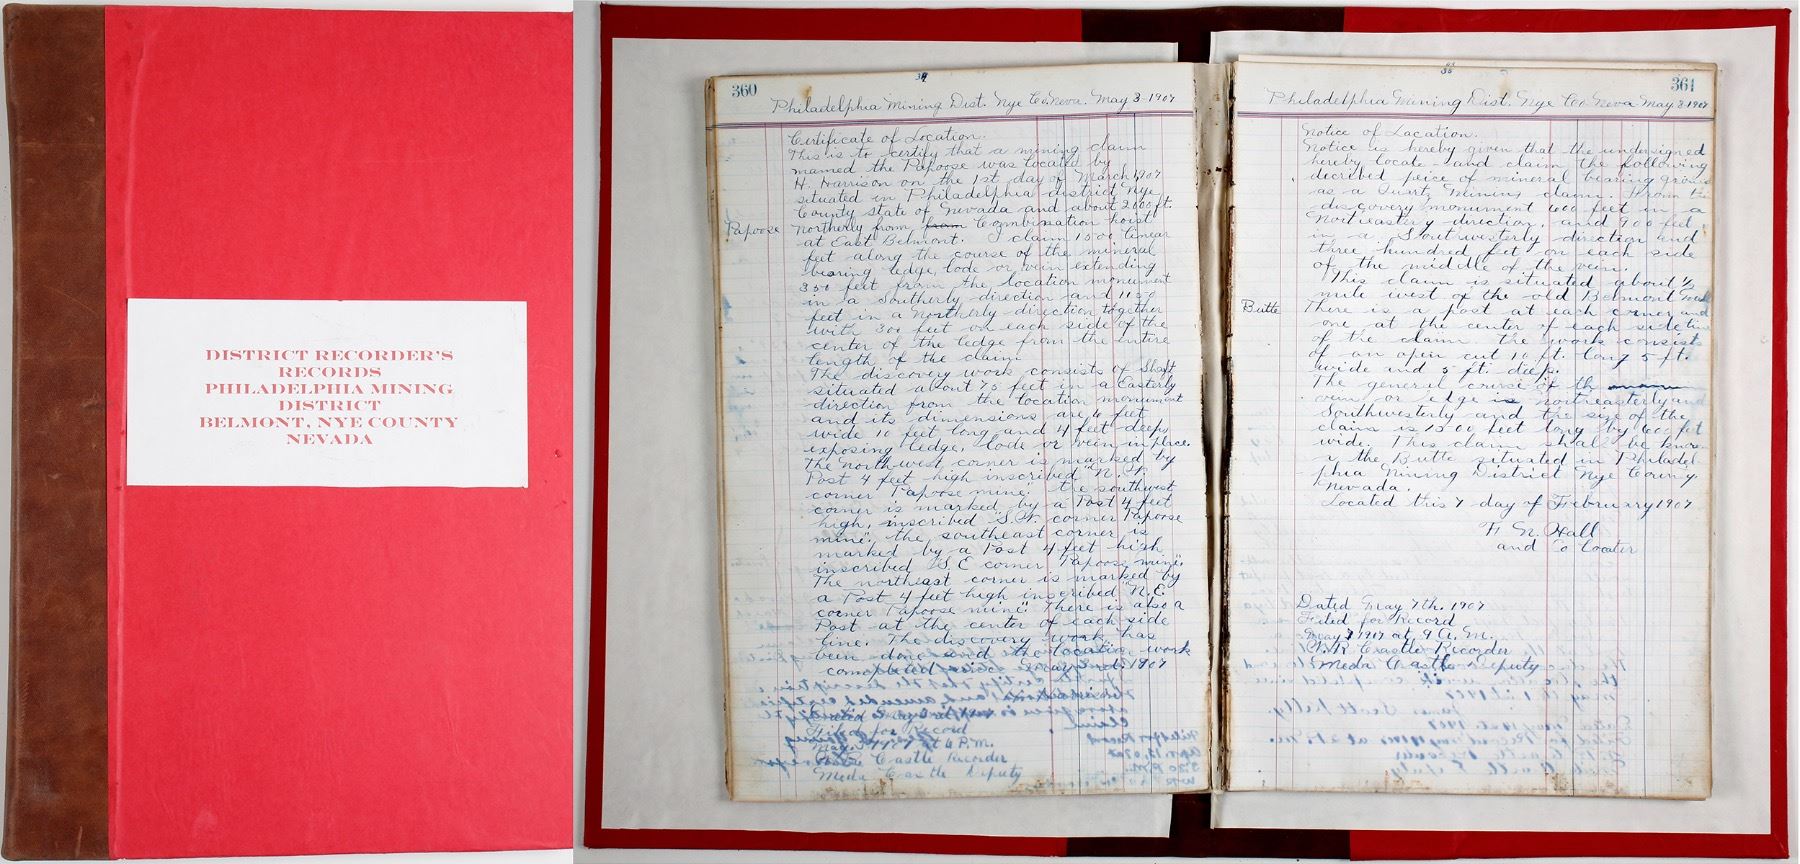 DISTRICT RECORDER'S
RECORDS
PHILADELPHIA MINING
DISTRICT
BELMONT, NYE COUNTY
NEVADA
360
Philadelphia Mining Dist. Nye Co. Neva. May 3-1907
Certificate of Location.
This is to certify that a mining claim
named the Papoose was located by
H. Harrison on the 1st day of March 1907
situated in Philadelphia district Nye
County state of Nevada and about 2000 ft.
Papoose
Northerly from from Combination hoist
at East Belmont. I claim 1500 linear
feet along the course of the mineral
bearing ledge, lode or vein extending
350 feet from the location monument
in a Southerly direction and 1150
feet in a Northerly direction together
with 300 feet on each side of the
center of the ledge from the entire
length of the claim.
The discovery work consists of Shaft
situated about 75 feet in a Easterly
direction from the location monument
and its dimensions are 6 feet
wide 10 feet long and 4 feet deep
exposing ledge, lode or vein in place.
The northwest corner is marked by
Post 4 feet high inscribed "N.W.
corner Papoose mine". the southwest
corner is marked by a Post 4 feet
high, inscribed "S.W. corner Papoose
mine", the southeast corner is
marked by a Post 4 feet high
inscribed "S.E corner Papoose mine".
The northeast corner is marked by
a Post 4 feet high inscribed "N.E.
corner Papoose mine". There is also a
Post at the center of each side
line. The discovery work has
been done and the location work
completed 1907
Filed for Record
1907 at 6 P.M.
Castle Recorder
Meda Castle Deputy
361
Philadelphia Mining Dist. Nye Co. Neva May 3-1907
Notice of Location.
Notice is hereby given that the undersigned
hereby locate and claim the following
decribed peice of mineral bearing ground
as a Quart Mining claim. From the
discovery monument 600 feet in a
Norteastery direction, and 900 feet
in a Southwesterly direction and
three hundred feet on each side
of the middle of the vein.
This claim is situated about 1/2
mile west of the old Belmont
Butte
There is a post at each corner and
one at the center of each side line
of the claim. the work consists
of an open cut 10 ft. long 5 ft.
wide and 5 ft. deep.
The general course of the
vein or edge is northeasterly and
Southwesterly and the size of the
claim is 1500 feet long by 600 feet
wide. This claim shall be known
a the Butte situated in Philadel-
phia Mining District Nye County,
Nevada.
Located this 7 day of February 1907
Hall
and Co locater
Dated May 7th. 1907
Filed for Record
May 7 1907 at 9 A.M.
W.R Castle Recorder
Meda Castle Deputy